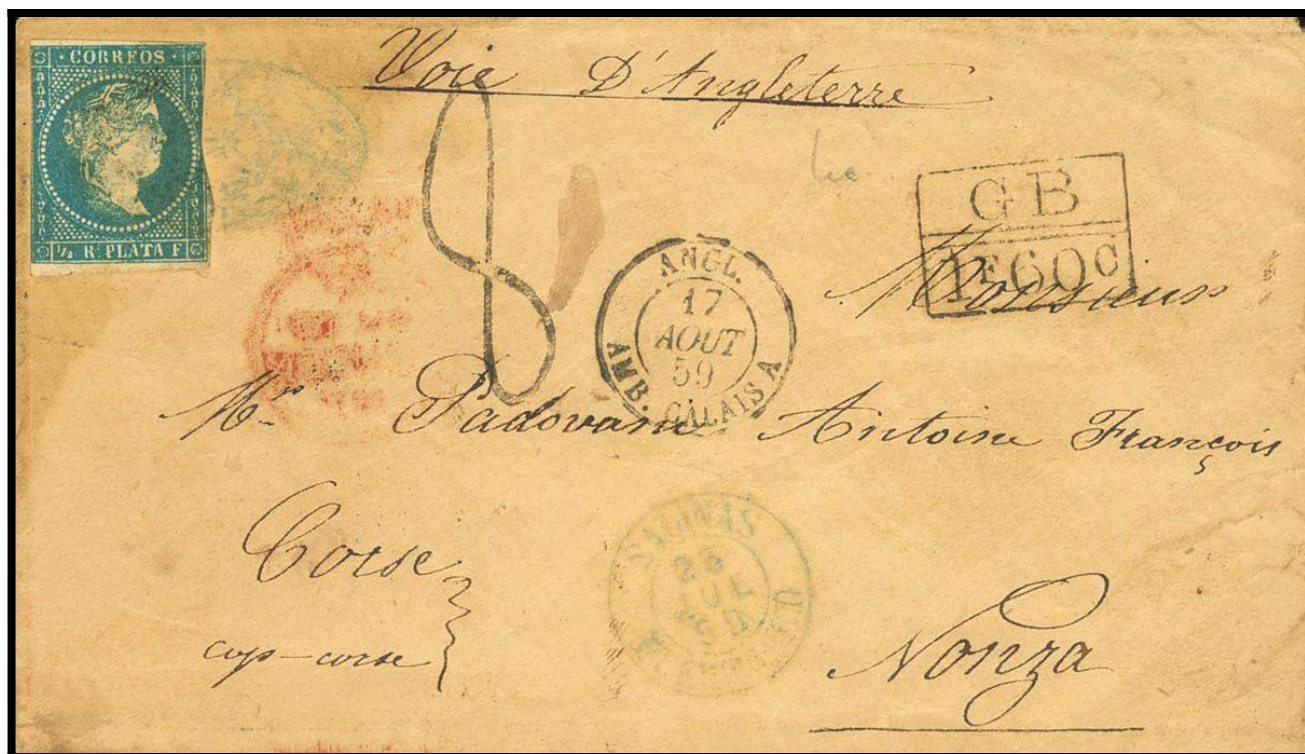 CORREOS
1/2 R. PLATA F
Voie D'Angleterre
8
GB
1F60C
ANGL.
17
AOUT
59
AMB. CALAIS A
Monsieur
Mr Padovani Antoine François
SALINAS
JUL
Corse
cap-corse
Nonza